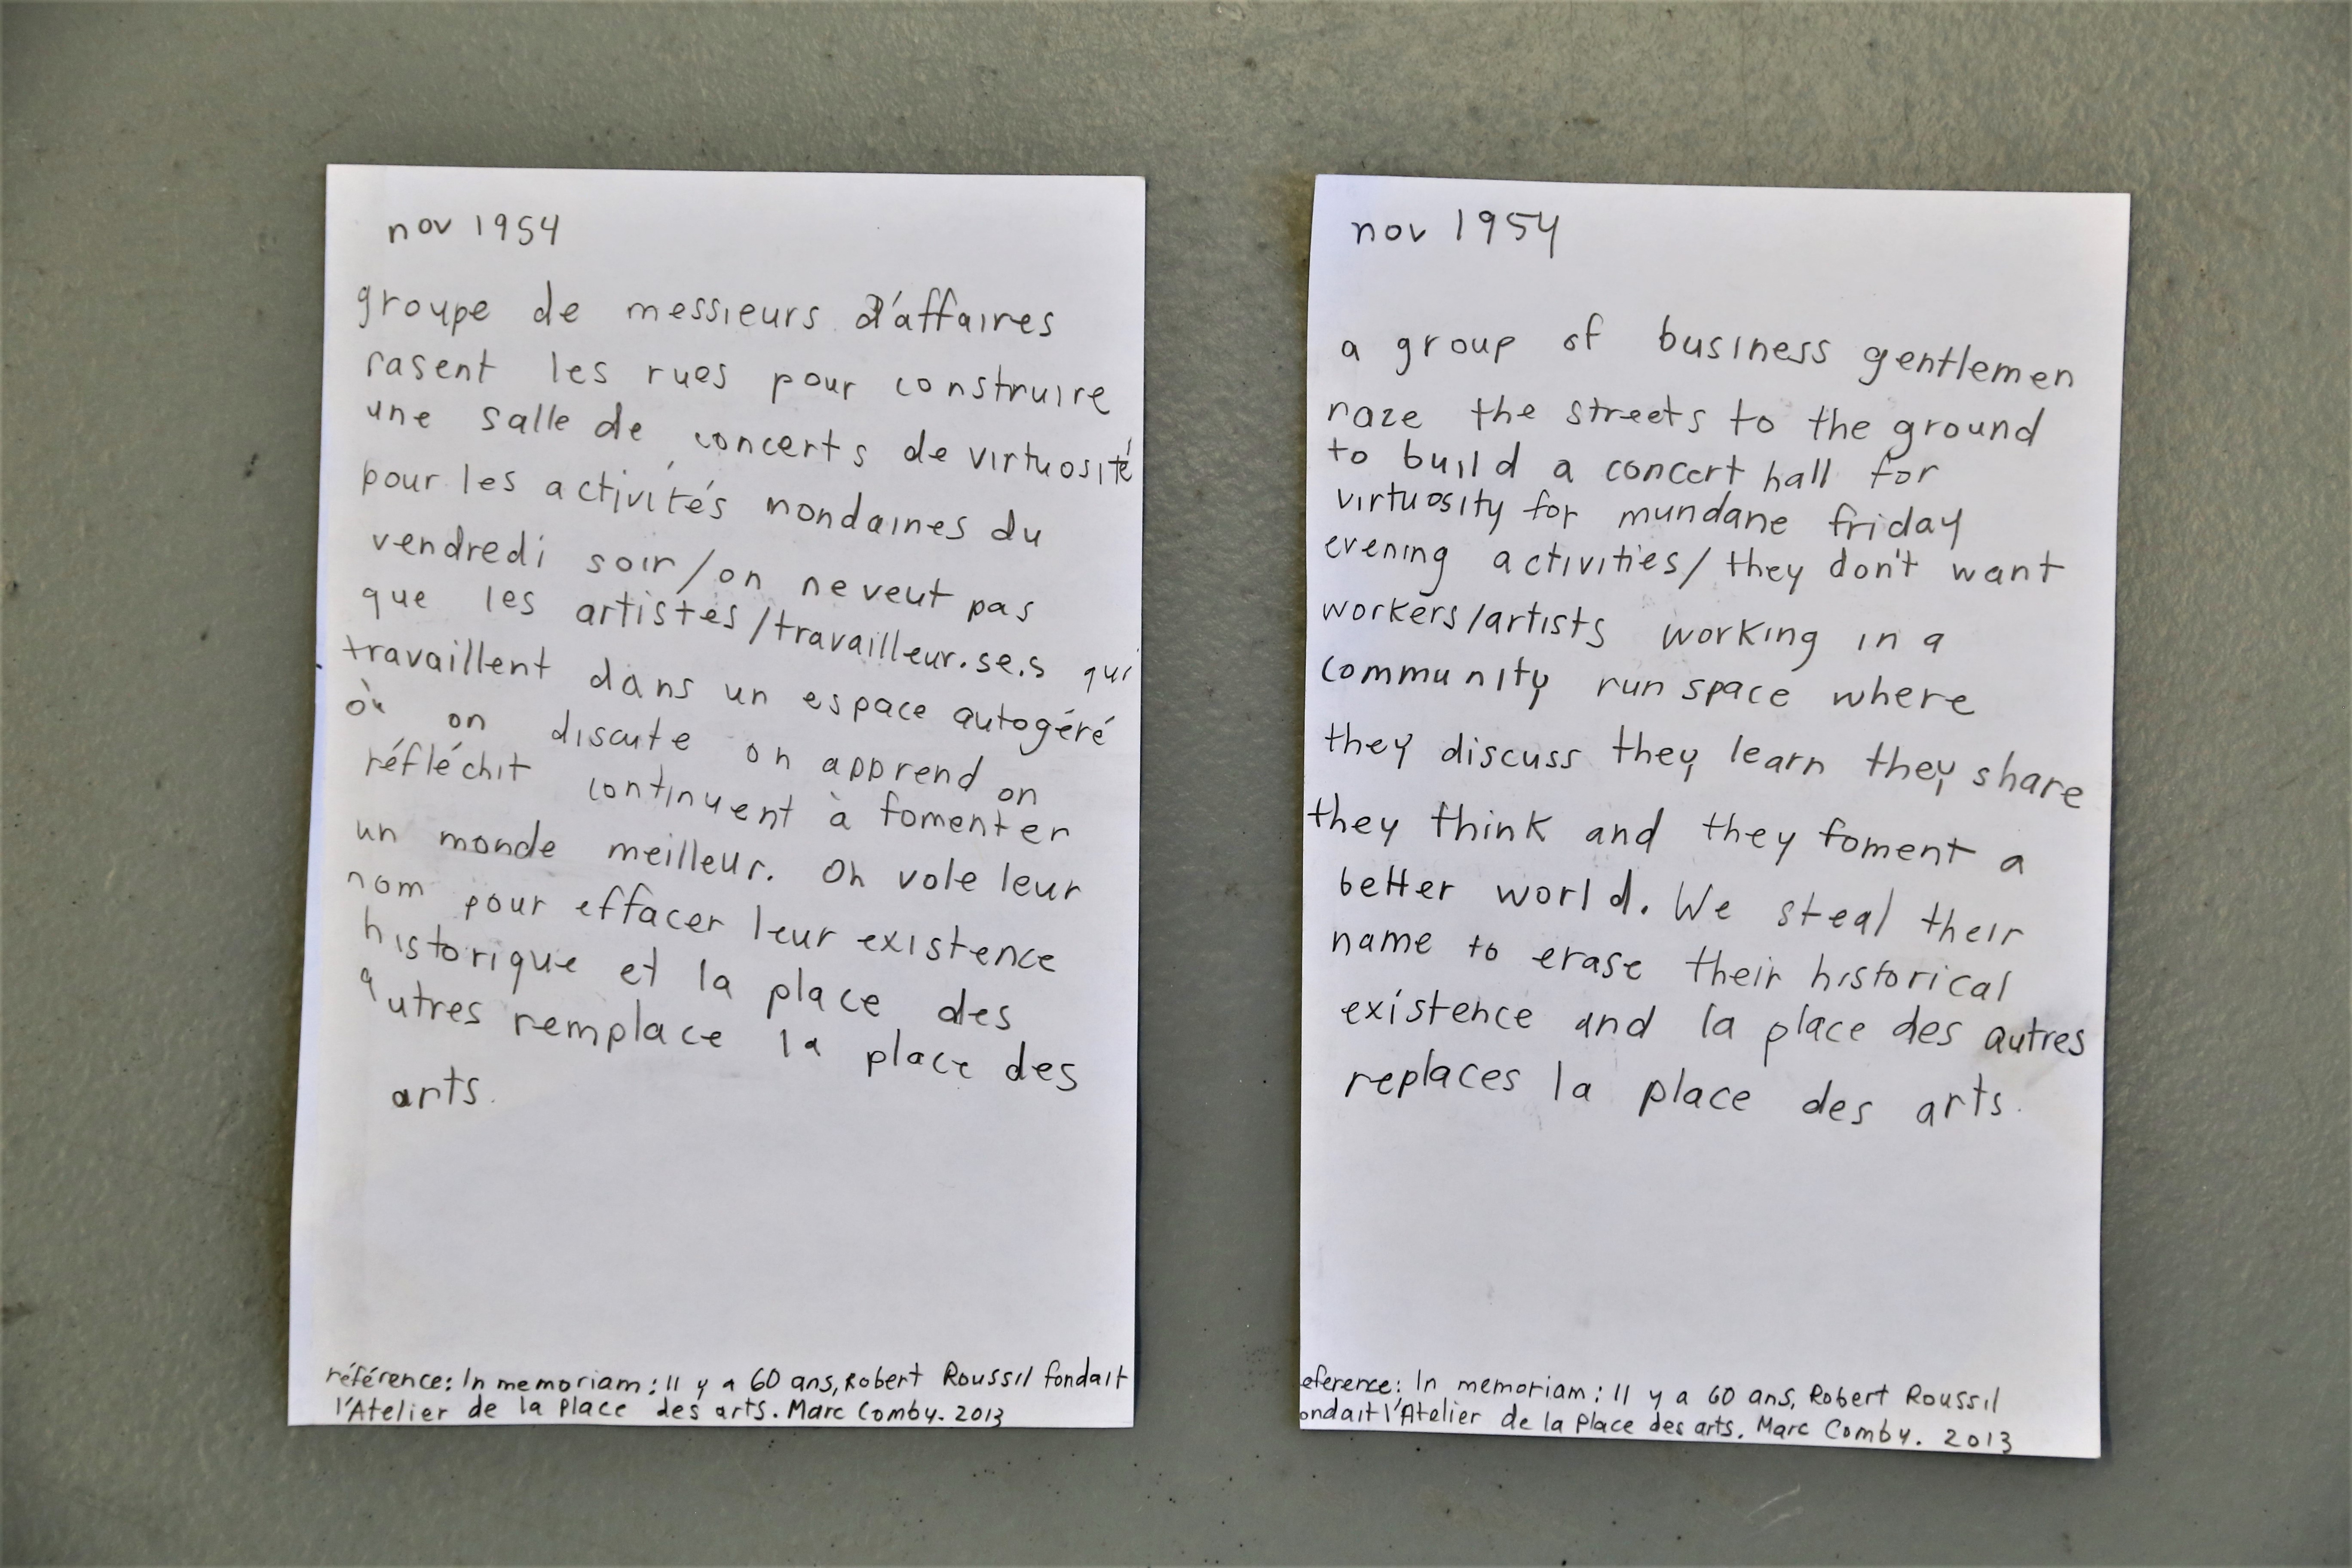 nov 1954
groupe de messieurs d'affaires
rasent les rues pour construire
une salle de concerts de virtuosité
pour les activités mondaines du
vendredi soir/on ne veut pas
que les artistes/travailleur.se.s qui
travaillent dans un espace autogéré
où on discute on apprend on
réfléchit continuent à fomenter
un monde meilleur. On vole leur
nom pour effacer leur existence
historique et la place des
autres remplace la place des
arts.
référence: In memoriam: Il y a 60 ans, Robert Roussil fondait
l'Atelier de la Place des arts. Marc Comby. 2013
nov 1954
a group of business gentlemen
raze the streets to the ground
to build a concert hall for
virtuosity for mundane friday
evening activities/ they don't want
workers/artists working in a
community run space where
they discuss they learn they share
they think and they foment a
better world. We steal their
name to erase their historical
existence and la place des autres
replaces la place des arts.
eference: In memoriam: Il y a 60 ans, Robert Roussil
ondait l'Atelier de la Place des arts. Marc Comby. 2013